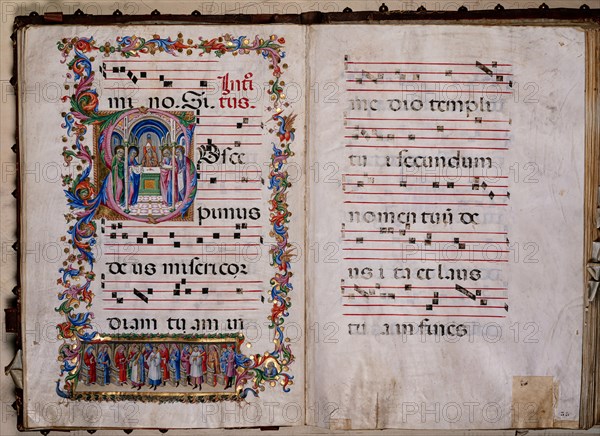 mi no. Si tus.
Susce
pimus
de us misericor
diam tu am in
me dio templi
tu i secundum
nomen tuū de
us i ta et laus
tu am fines